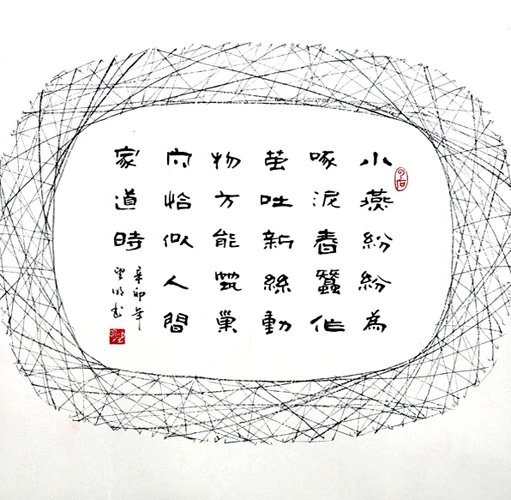 小燕紛紛為
啄泥春蠶作
茧吐新絲動
物方能巢
穴恰似人間
家道時
辛卯年